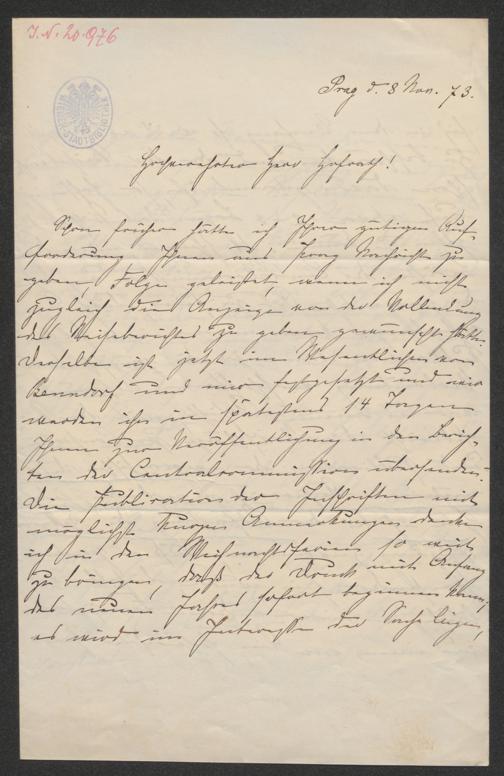 J.N. 20.976
WIENER STADTBIBLIOTHEK
Prag d. 8 Nov. 73.
Hochverehrter Herr Hofrath!
Schon früher hätte ich Ihrer gütigen Auf-
forderung Ihnen aus Prag Nachricht zu
geben Folge geleistet, wenn ich nicht
zugleich die Anzeige von der Vollendung
des Reiseberichtes zu geben gewünscht hätte.
Derselbe ist jetzt im Wesentlichen von
Benndorf und mir festgesetzt und wir
werden ihn in spätestens 14 Tagen
Ihnen zur Veröffentlichung in den Berich-
ten der Centralcommission übersenden.
Die Publication der Inschriften mit
möglichst kurzen Anmerkungen denke
ich in den Weihnachtsferien so weit
zu bringen, daß der Druck mit Anfang
des neuen Jahres sofort beginnen kann,
es wird im Interesse der Sache liegen,